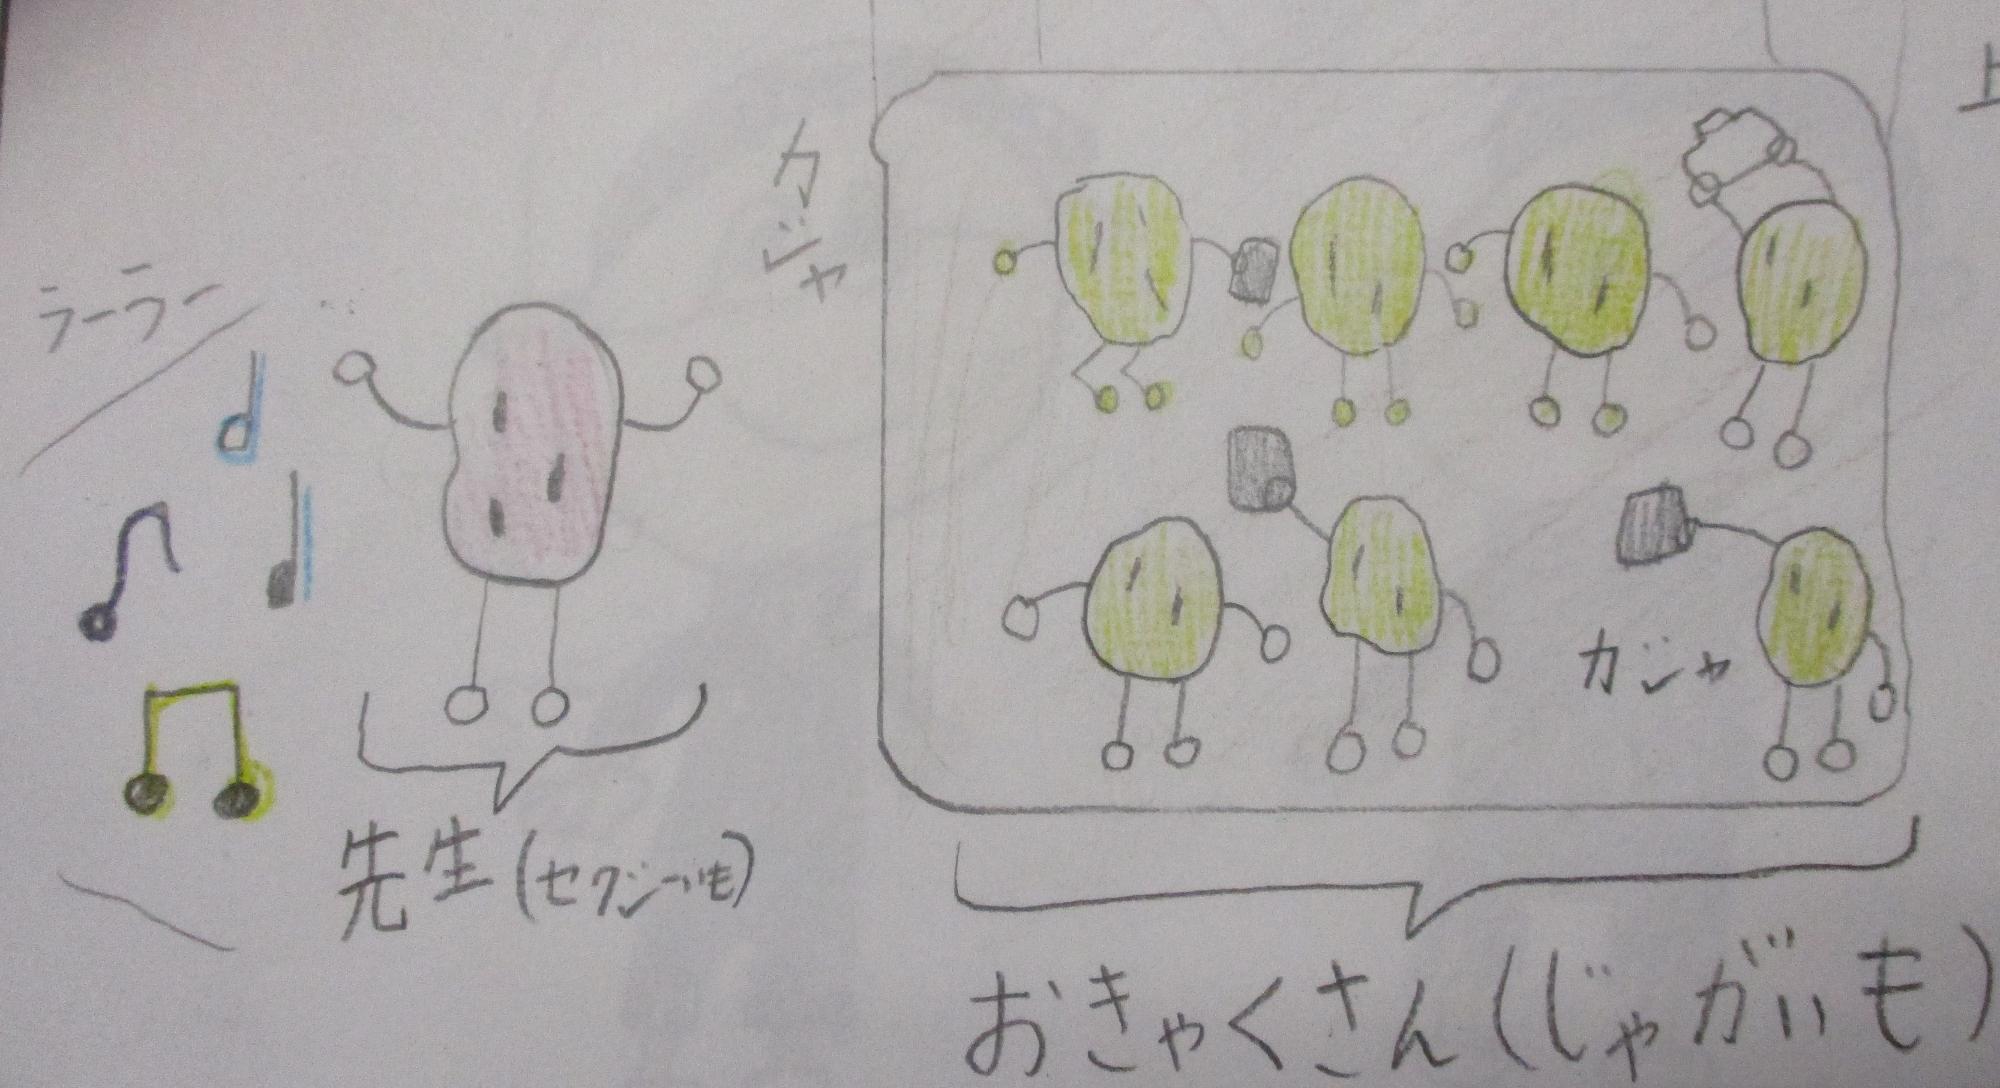 ラーラー
カジャ
カジャ
先生(セクシーいも)
おきゃくさん(じゃがいも)
上